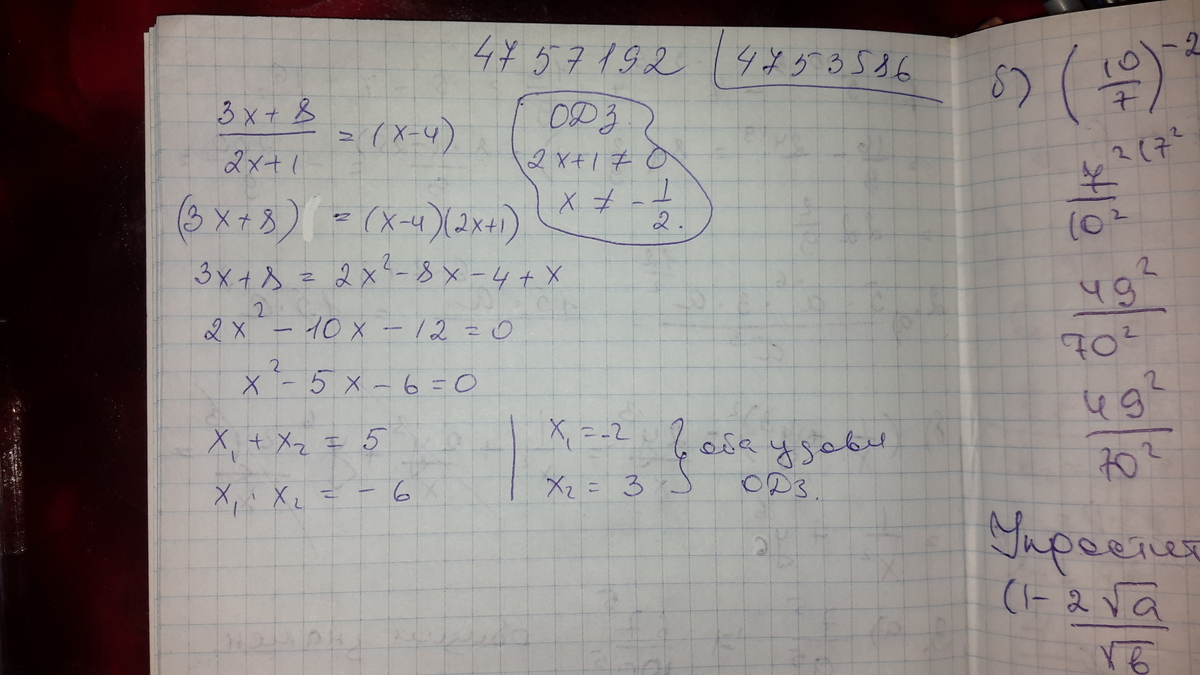 4757192 4753586
(3x+8)/(2x+1) = (x-4)
ОДЗ.
2x+1 ≠ 0
x ≠ -1/2.
(3x+8) = (x-4)(2x+1)
3x+8 = 2x²-8x-4+x
2x²-10x-12=0
x²-5x-6=0
x₁+x₂ = 5
x₁·x₂ = -6
x₁=-2
x₂= 3
оба удовл
ОДЗ.
б) (10/7)⁻²
49²/70²
49²/70²
(1- 2√a/√b